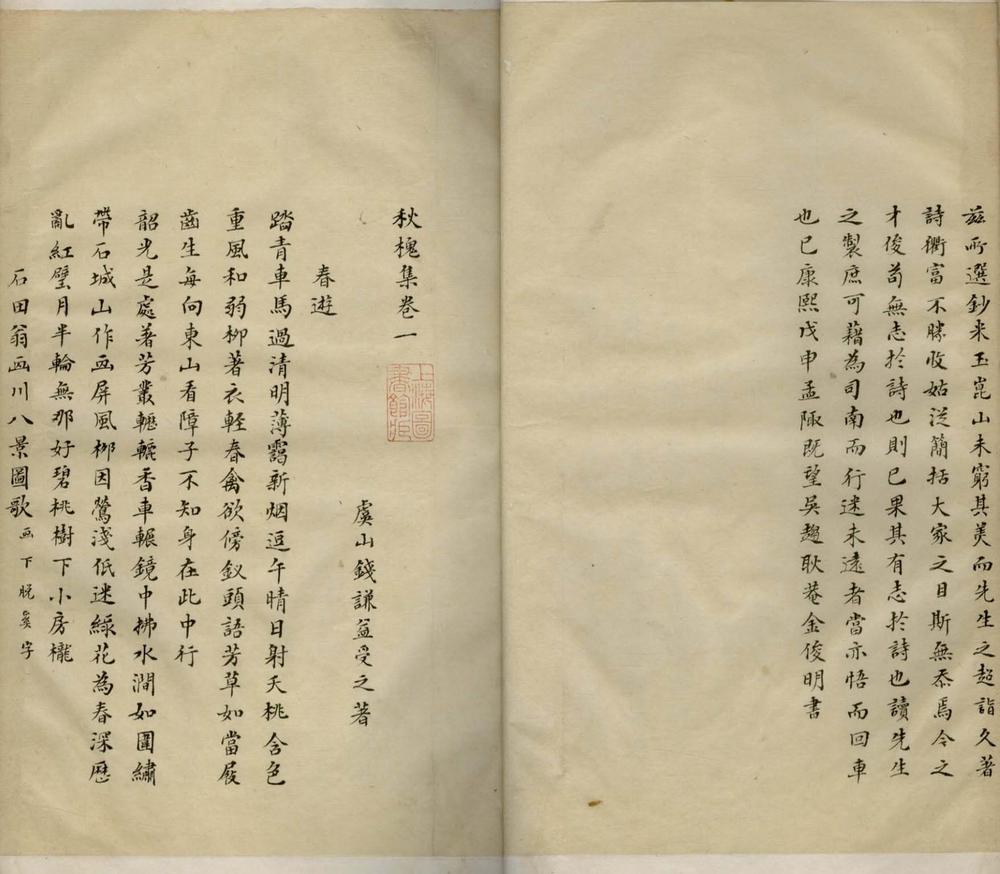 茲所選鈔米玉崑山未窮其美而先生之超詣久著
詩衢富不勝收姑從簡括大家之目斯無忝焉今之
才俊苟無志於詩也則已果其有志於詩也讀先生
之製庶可藉為司南而行迷未遠者當亦悟而回車
也已康熙戊申孟陬既望吳趨耿菴金俊明書
秋槐集卷一
上海圖書館藏
虞山錢謙益受之著
春遊
踏青車馬過清明薄靄新烟逗午晴日射夭桃含色
重風和弱柳著衣輕春禽欲傍釵頭語芳草如當屐
齒生每向東山看障子不知身在此中行
韶光是處著芳叢轣轆香車輾鏡中拂水澗如圍繡
帶石城山作画屏風柳因鶯淺低迷綠花為春深歷
亂紅璧月半輪無那好碧桃樹下小房櫳
石田翁画川八景圖歌画下脫奚字